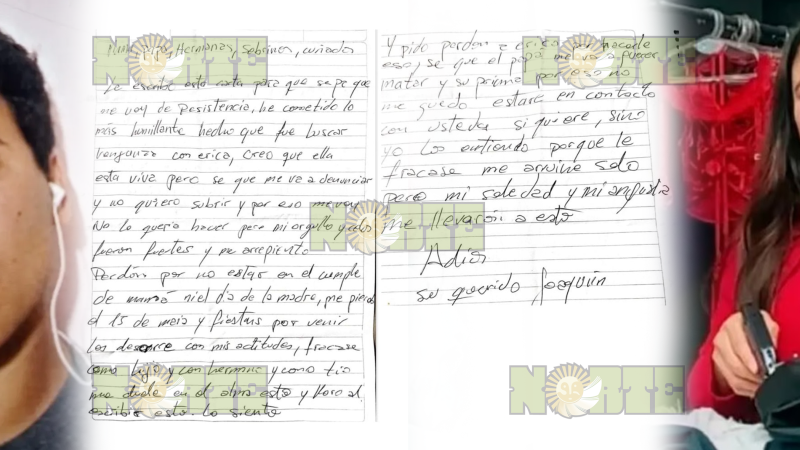 Hermanas, Sobrinos, cuñados
Le escribo esta carta para que sepa que
me voy de Resistencia, he cometido lo
más humillante hecho que fue buscar
venganza con erica, creo que ella
esta viva pero se que me va a denunciar
y no quiero subrir y por eso me voy
No lo queria hacer pero mi orgullo y celos
fueron fuertes y me arrepiento
Perdón por no estar en el cumple
de mamá ni el dia de la madre, me pierdo
el 15 de meia y fiestas por venir
Los decepcione con mis actitudes, fracase
como hijo y con hermano y como tio
me duele en el alma esto y lloro al
escribir esto. Lo siento
Y pido perdon a erica por hacerle
eso, se que el papá me va a querer
matar y su primo por eso no
me quedo estaré en contacto
con ustedes si quiere, sino
yo los entiendo porque le
fracase me arruine solo
pero mi soledad y mi angustia
me llevaron a esto
Adios
su querido Joaquin
NORTE
NORTE
NORTE
NORTE
NORTE